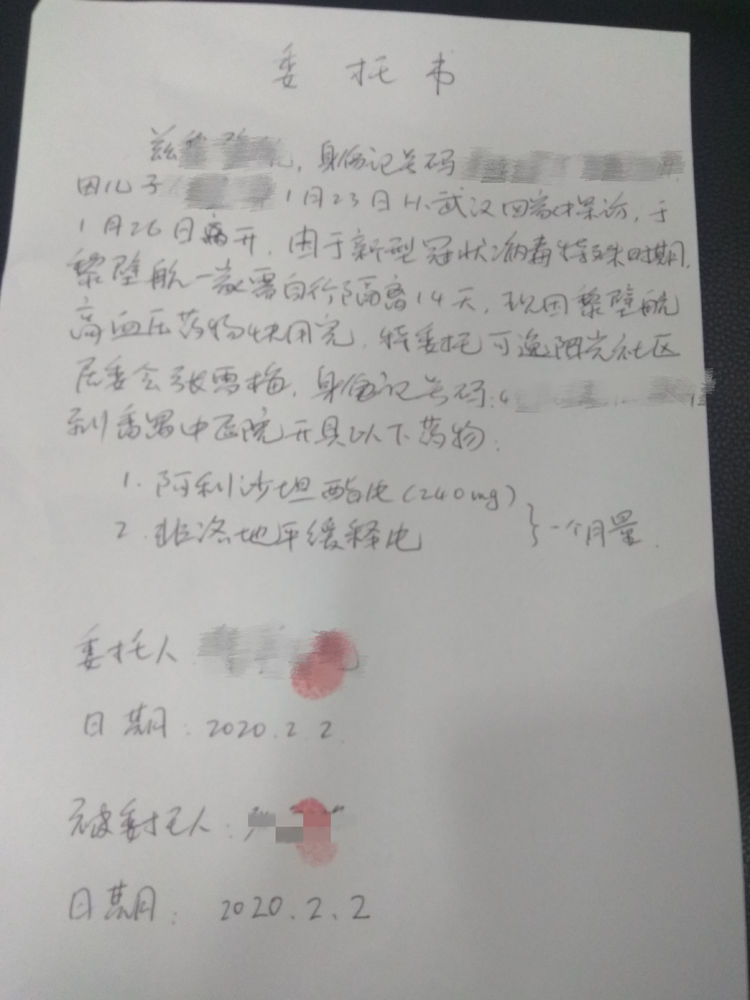 委托书
兹，身份证号码
因儿子 1月23日从武汉回家探访，于
1月26日离开，由于新型冠状病毒特殊时期，
黎壁航一家需自行隔离14天，现因黎壁航
高血压药物快用完，特委托可逸阳光社区
居委会张雪梅，身份证号码：4
到番禺中医院开具以下药物：
1. 阿利沙坦酯片（240mg）
2. 非洛地平缓释片 } 一个月量．
委托人
日期：2020.2.2．
被委托人：
日期：2020.2.2